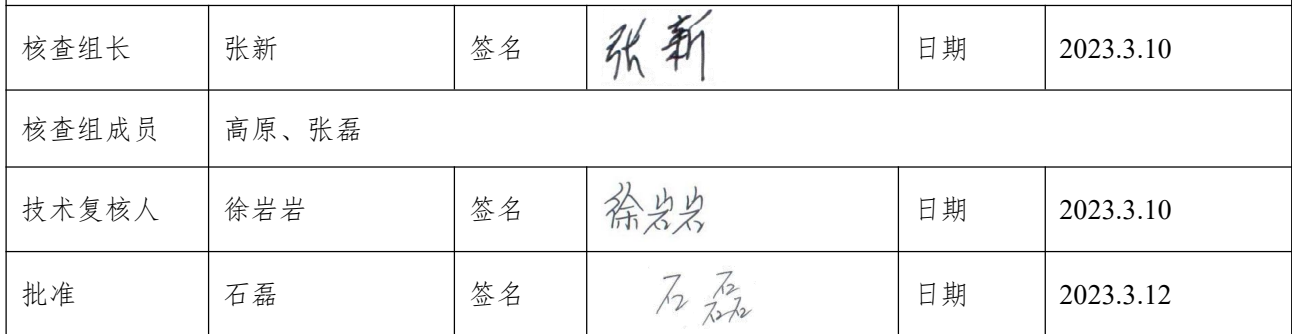 核查组长 张新 签名 张新 日期 2023.3.10
核查组成员 高原、张磊
技术复核人 徐岩岩 签名 徐岩岩 日期 2023.3.10
批准 石磊 签名 石磊 日期 2023.3.12